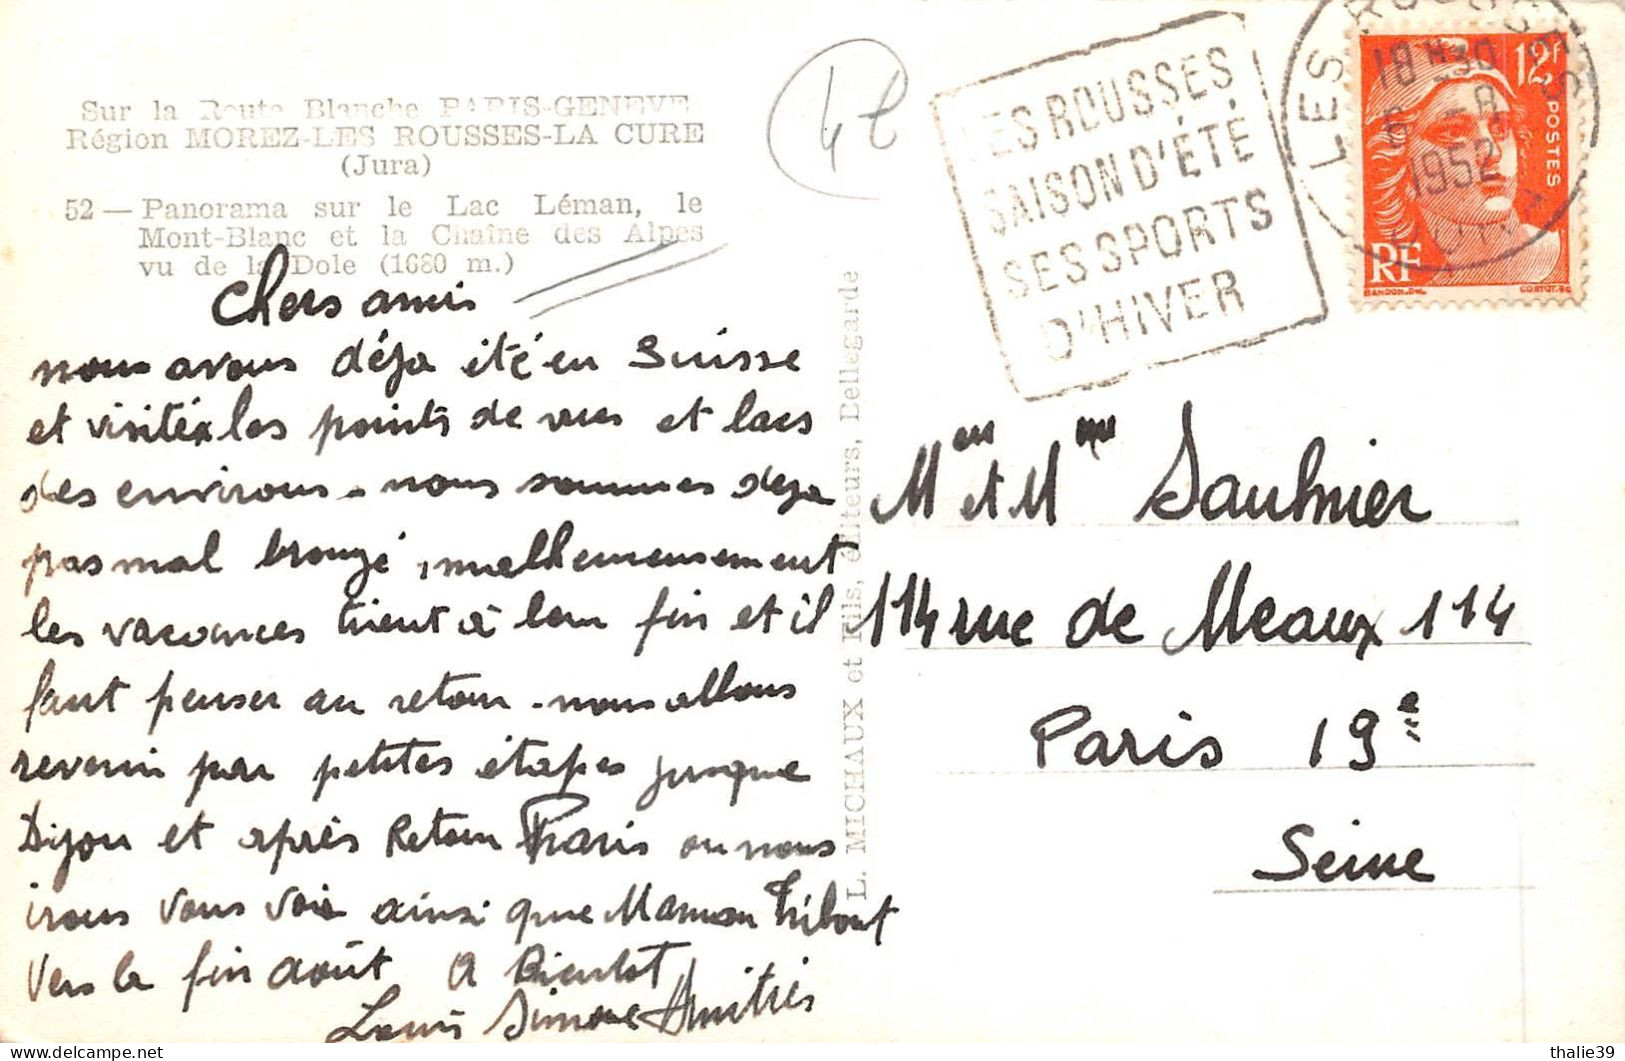 Sur la Route Blanche PARIS-GENEVE
Région MOREZ-LES ROUSSES-LA CURE
(Jura)
52 — Panorama sur le Lac Léman, le
Mont-Blanc et la Chaîne des Alpes
vu de la Dole (1680 m.)
Chers amis
nous avons déja été en Suisse
et visitéx les points de vues et lacs
des environs - nous sommes deja
pas mal bronzé, malheureusement
les vacances tient à leur fin et il
faut penser au retour - nous allons
revenir par petites étapes jusque
Dijon et après Retour Paris ou nous
irons vous voir ainsi que Maman Tribout
Vers la fin août A Bientot
Louis Simone
L. MICHAUX et Fils, éditeurs, Bellegarde
42
LES ROUSSES
SAISON D'ÉTÉ
SES SPORTS
D'HIVER
LES ROUSSES
18 H 30
6 - 8
1952
JURA
12f
POSTES
RF
GANDON.DEL
CORTOT.SC
Mr et Mme Saulnier
114 rue de Meaux 114
Paris 19e
Seine
thalie39